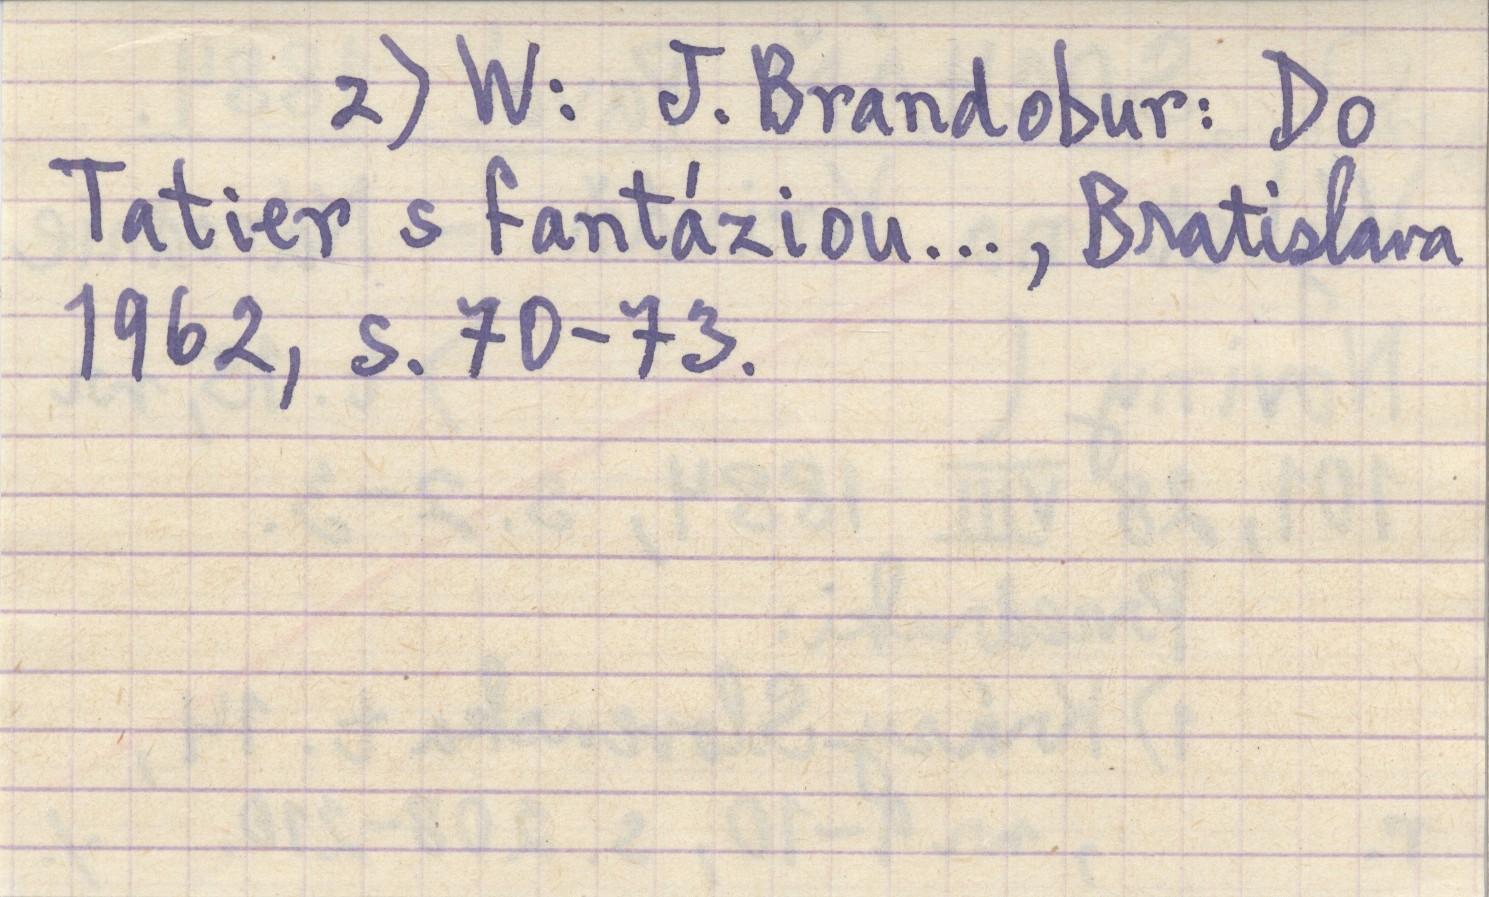 2) W: J. Brandobur: Do
Tatier s fantáziou..., Bratislava
1962, s. 70-73.